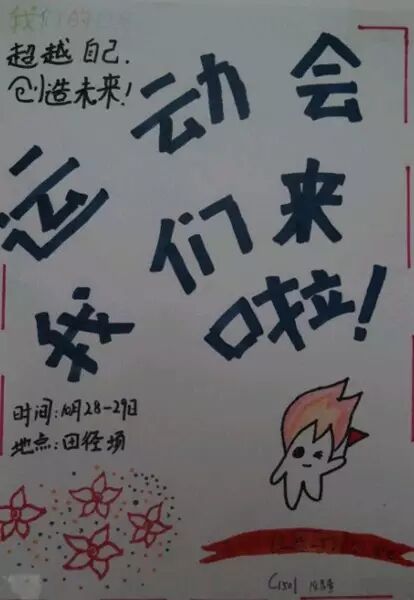 我们的
超越自己.
创造未来!
运动会
我们来
啦!
时间:10月28-29日
地点:田径场